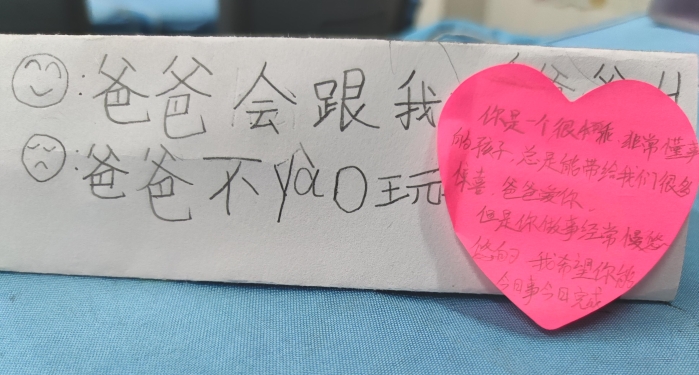 : 爸爸会跟我
: 爸爸不yào玩
你是一个很乖 非常懂事
的孩子,总是能带给我们很多
惊喜,爸爸爱你、
但是你做事经常慢悠
悠的 我希望你能
今日事今日完成